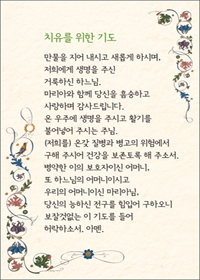 치유를 위한 기도
만물을 지어 내시고 새롭게 하시며,
저희에게 생명을 주신
거룩하신 하느님.
마리아와 함께 당신을 흠숭하고
사랑하며 감사드립니다.
온 우주에 생명을 주시고 활기를
불어넣어 주시는 주님.
(저희를) 온갖 질병과 병고의 위험에서
구해 주시어 건강을 보존토록 해 주소서.
병약한 이의 보호자이신 어머니,
또 하느님의 어머니이시고
우리의 어머니이신 마리아님,
당신의 능하신 전구를 힘입어 구하오니
보잘것없는 이 기도를 들어
허락하소서. 아멘.